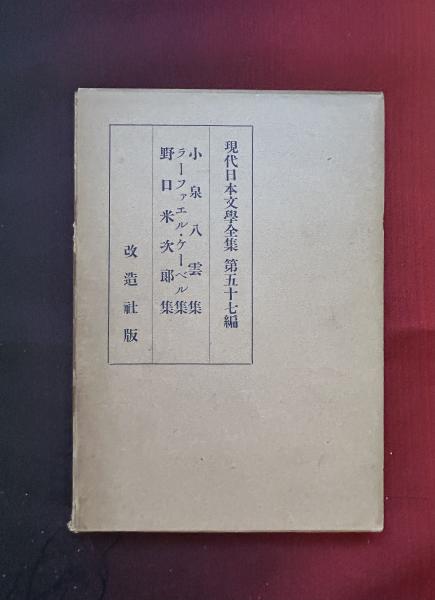 現代日本文學全集 第五十七編
小泉八雲集
ラーファエル・ケーベル集
野口米次郎集
改造社版